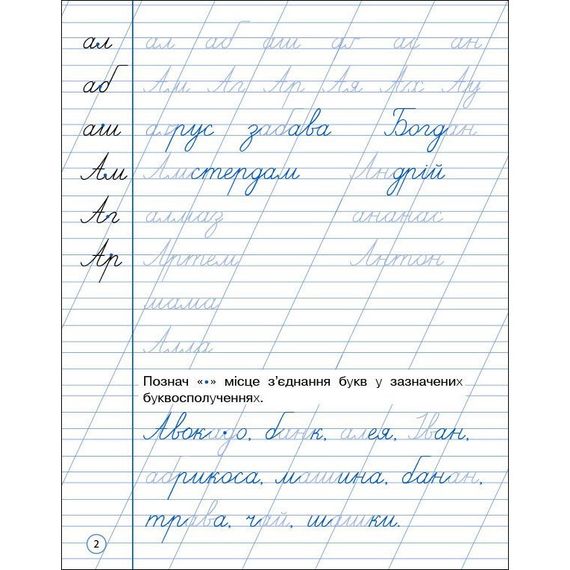 ал ал аб аш ая ас ан
аб Ам Аг Ар Ая Ах Ау
аш аґрус забава Богдан
Ам Амстердам Андрій
Аг алмаз ананас
Ар Артем Антон
мама
Алла
Познач «•» місце з’єднання букв у зазначених
буквосполученнях.
Авокадо, банк, алея, Іван,
абрикоса, машина, банан,
трава, чай, шашки.
2